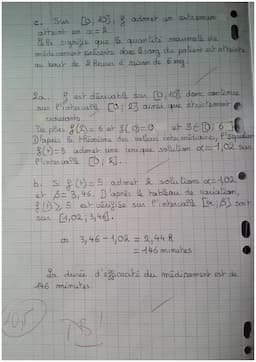 c. Sur [0; 10], f admet un extremum
atteint en x = 2.
Elle signifie que la quantité maximale de
médicament présente dans le sang du patient est atteinte
au bout de 2 heures à raison de 6 mg.
2a. f est dérivable sur [0; 10] donc continue
sur l'intervalle [0; 2] ainsi que strictement
croissante.
De plus f(2) = 6 et f(0) = 0 et 5 ∈ [0; 6]
D'après le théorème des valeurs intermédiaires, l'équation
f(t) = 5 admet une unique solution α = 1,02 sur
l'intervalle [0; 2].
b. Si f(t) = 5 admet 2 solutions α = 1,02
et β = 3,46. D'après le tableau de variation,
f(t) ≥ 5 est vérifiée sur l'intervalle [α; β] soit
sur [1,02; 3,46].
3,46 - 1,02 = 2,44 h
= 146 minutes
La durée d'efficacité du médicament est de
146 minutes.
TB!